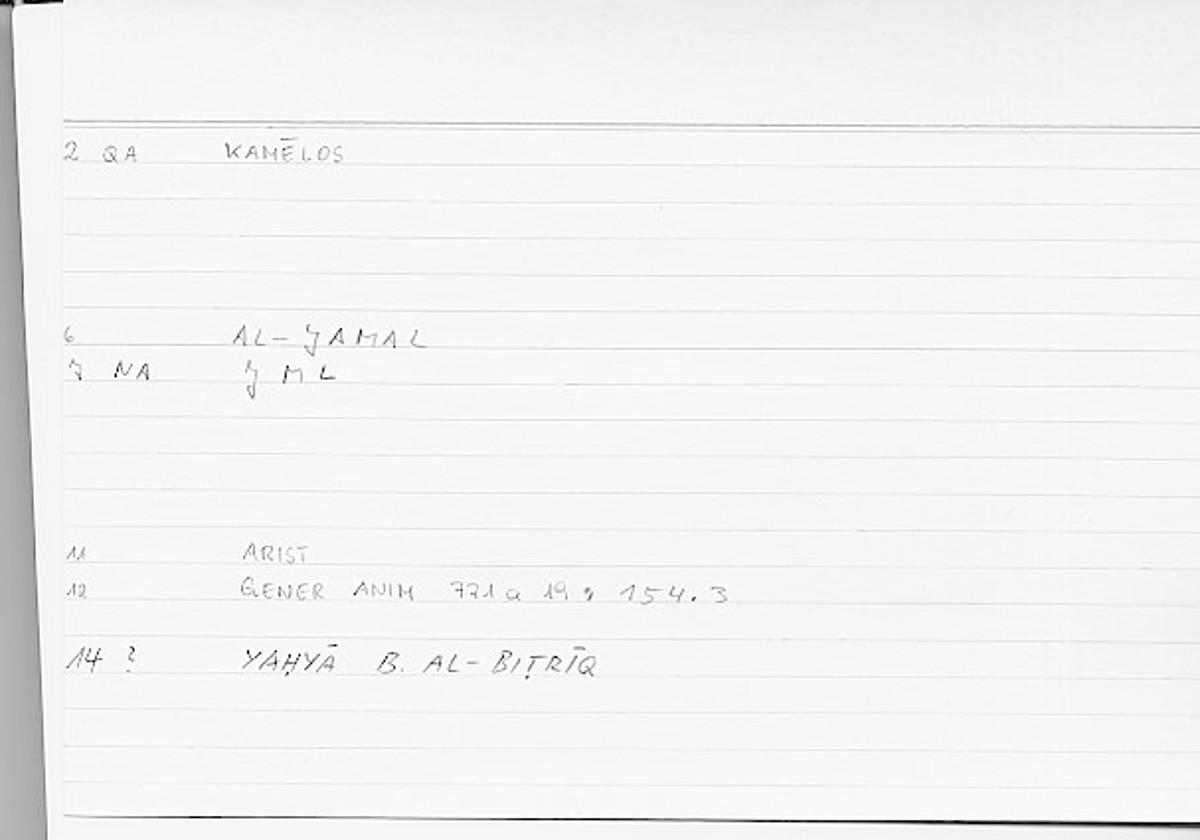 2 QA KAMĒLOS
6 AL-JAMAL
7 NA JML
11 ARIST
12 GENER ANIM 771a 19; 154.3
14 ? YAḤYĀ B. AL-BIṬRĪQ